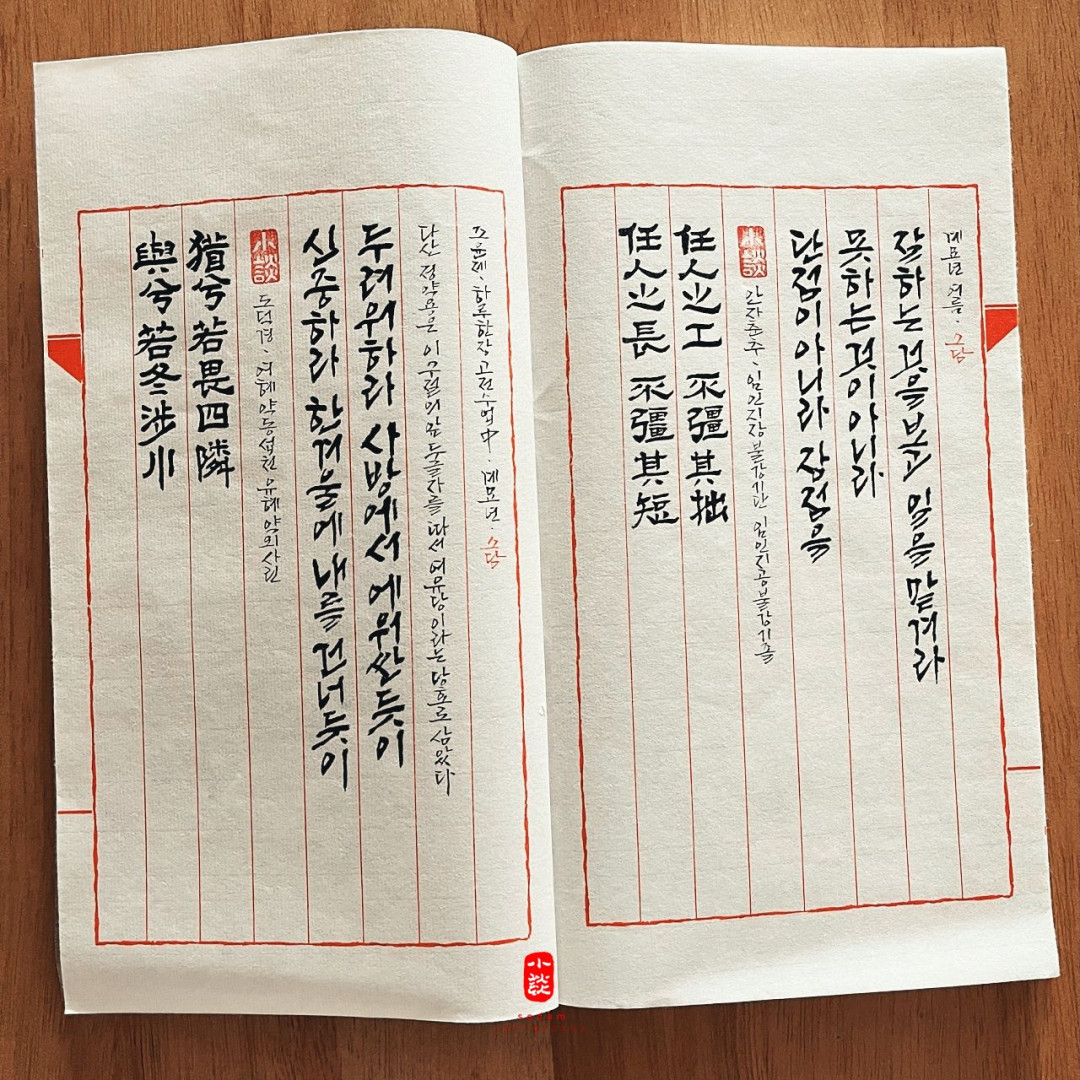 與兮 若冬涉川
猶兮 若畏四隣
小談 도덕경 · 여혜약동섭천 유혜약외사린
신중하라 한겨울에 내를 건너듯이
두려워하라 사방에서 에워싼듯이
다산 정약용은 이 구절의 앞 두글자를 따서 여유당이라는 당호로 삼았다
조윤제 · 하루한장 고전수업 中 · 계묘년 · 소담
任人之長 不彊其短
任人之工 不彊其拙
小談 안자춘추 · 임인지장불강기단 임인지공불강기졸
단점이 아니라 장점을
못하는 것이 아니라
잘하는 것을 보고 일을 맡겨라
계묘년 여름 · 소담
小談